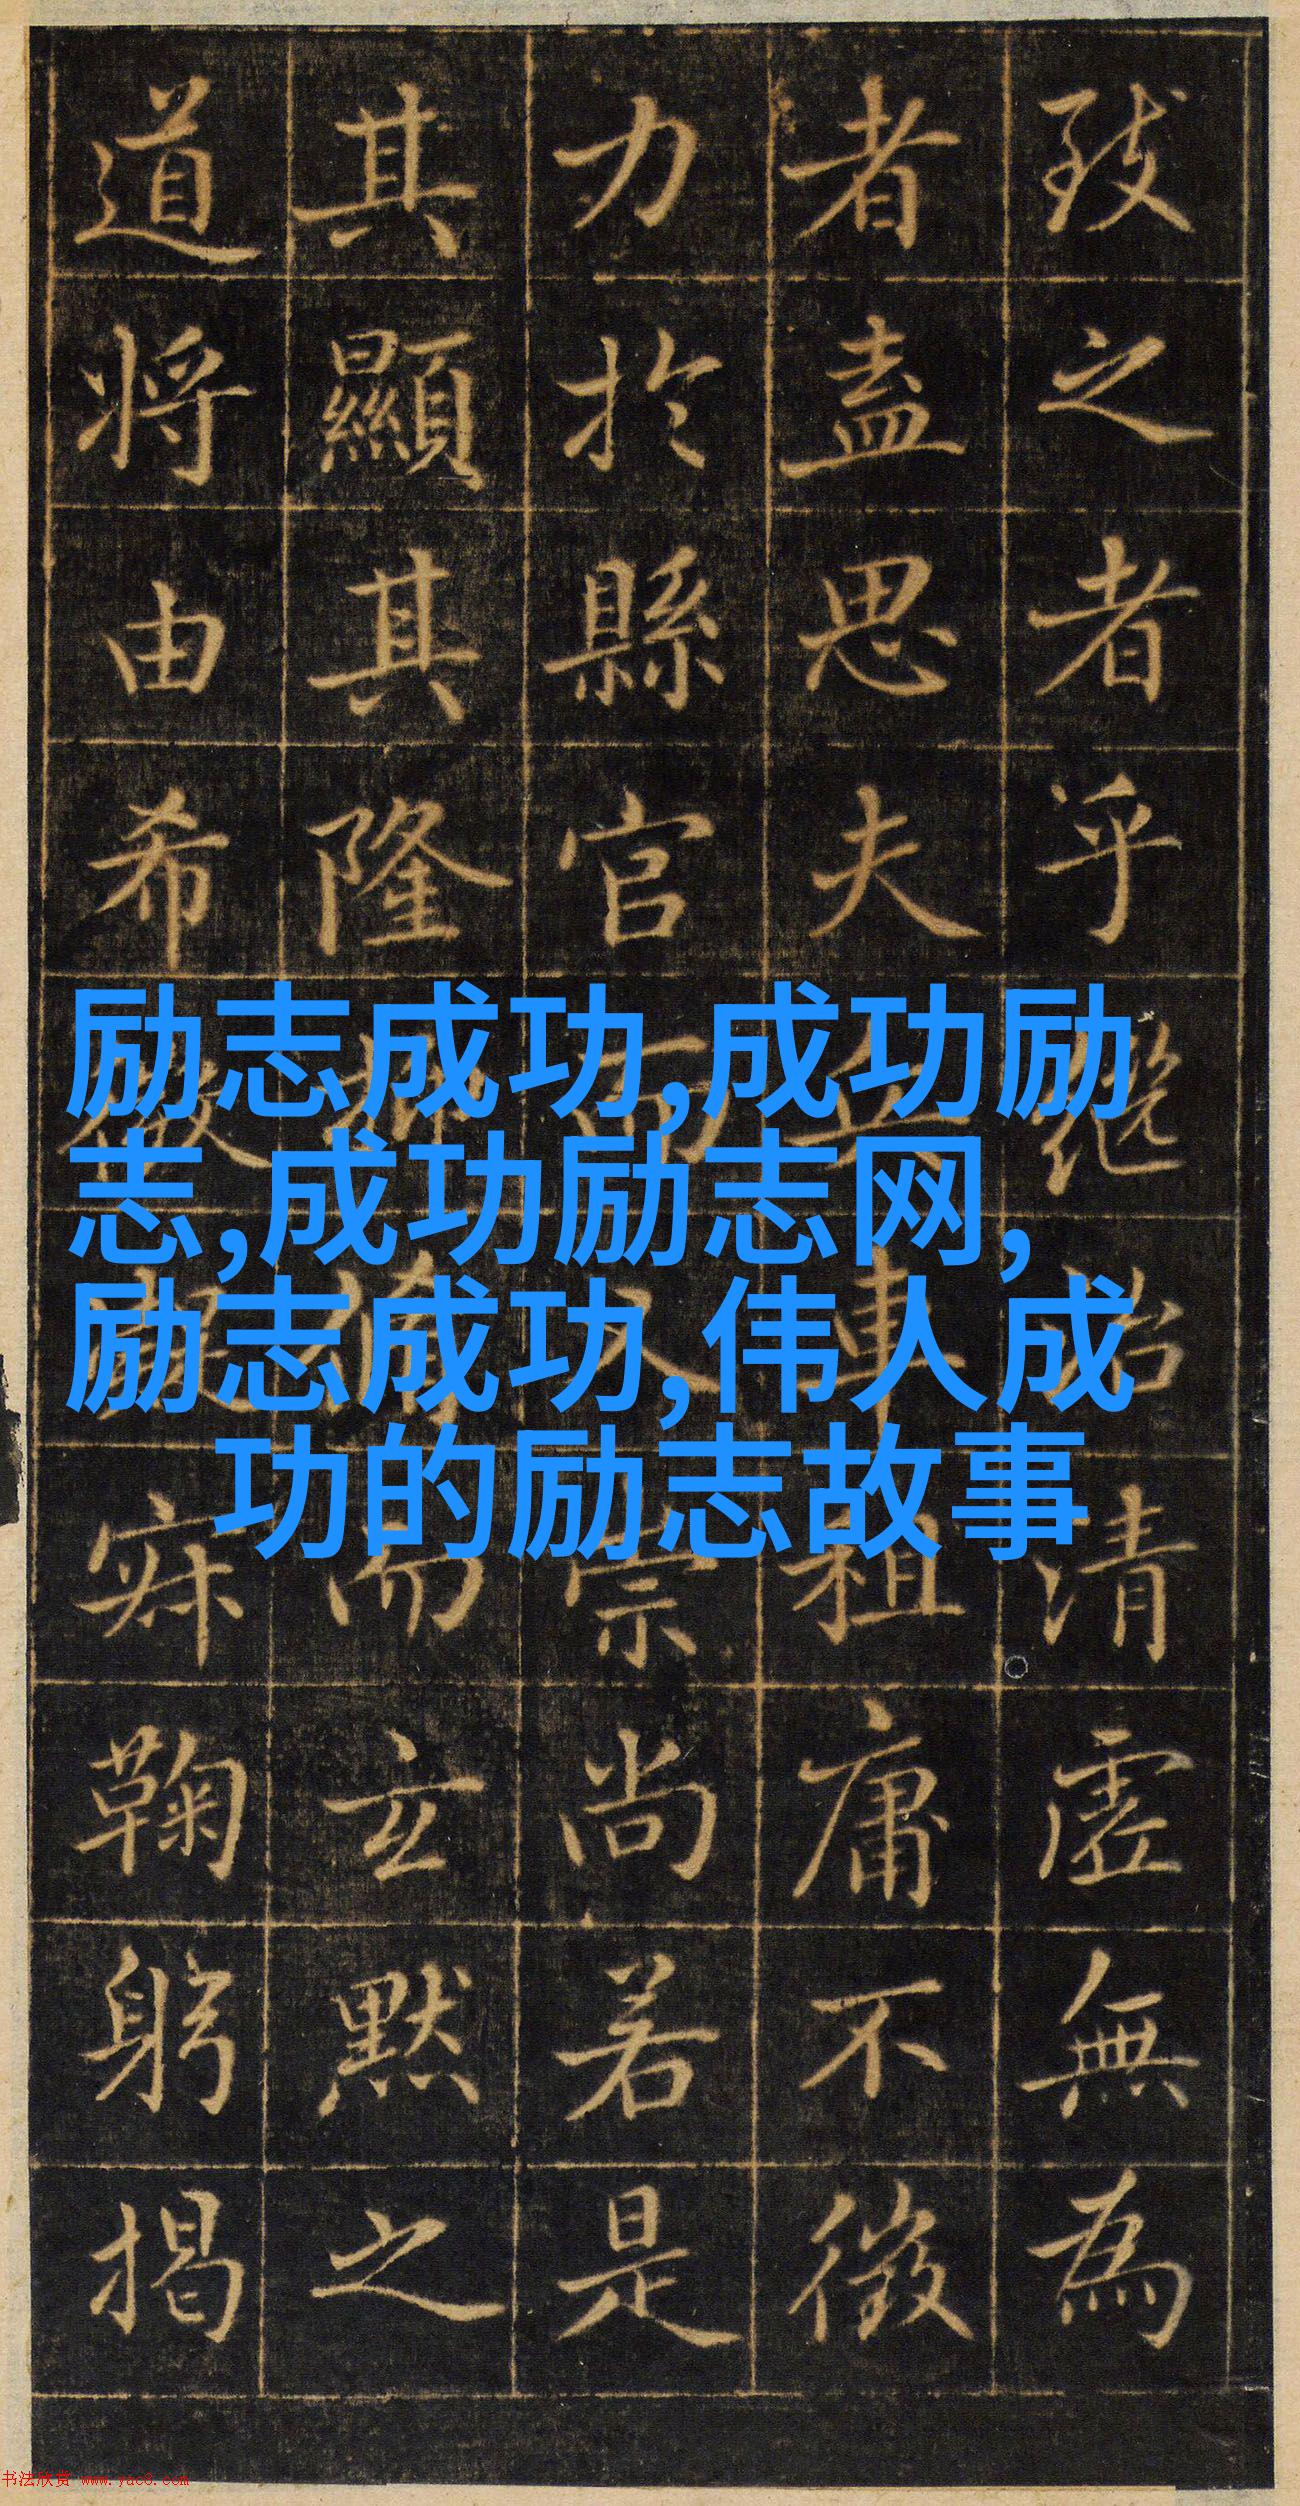 致之者乎繼清虛無為
者盡思夫兵車租庸不徵
力於縣官而崇尚若是
其顯其隆抑而玄默之
道將由希微寂鞠躬揭
励志成功,成功励
志,成功励志网,
励志成功,伟人成
功的励志故事
书法欣赏 www.yac8.com